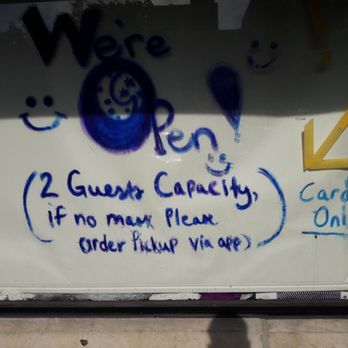 We're
Open!
(2 Guests Capacity,
if no mask Please
order Pickup via app)
Card
Only